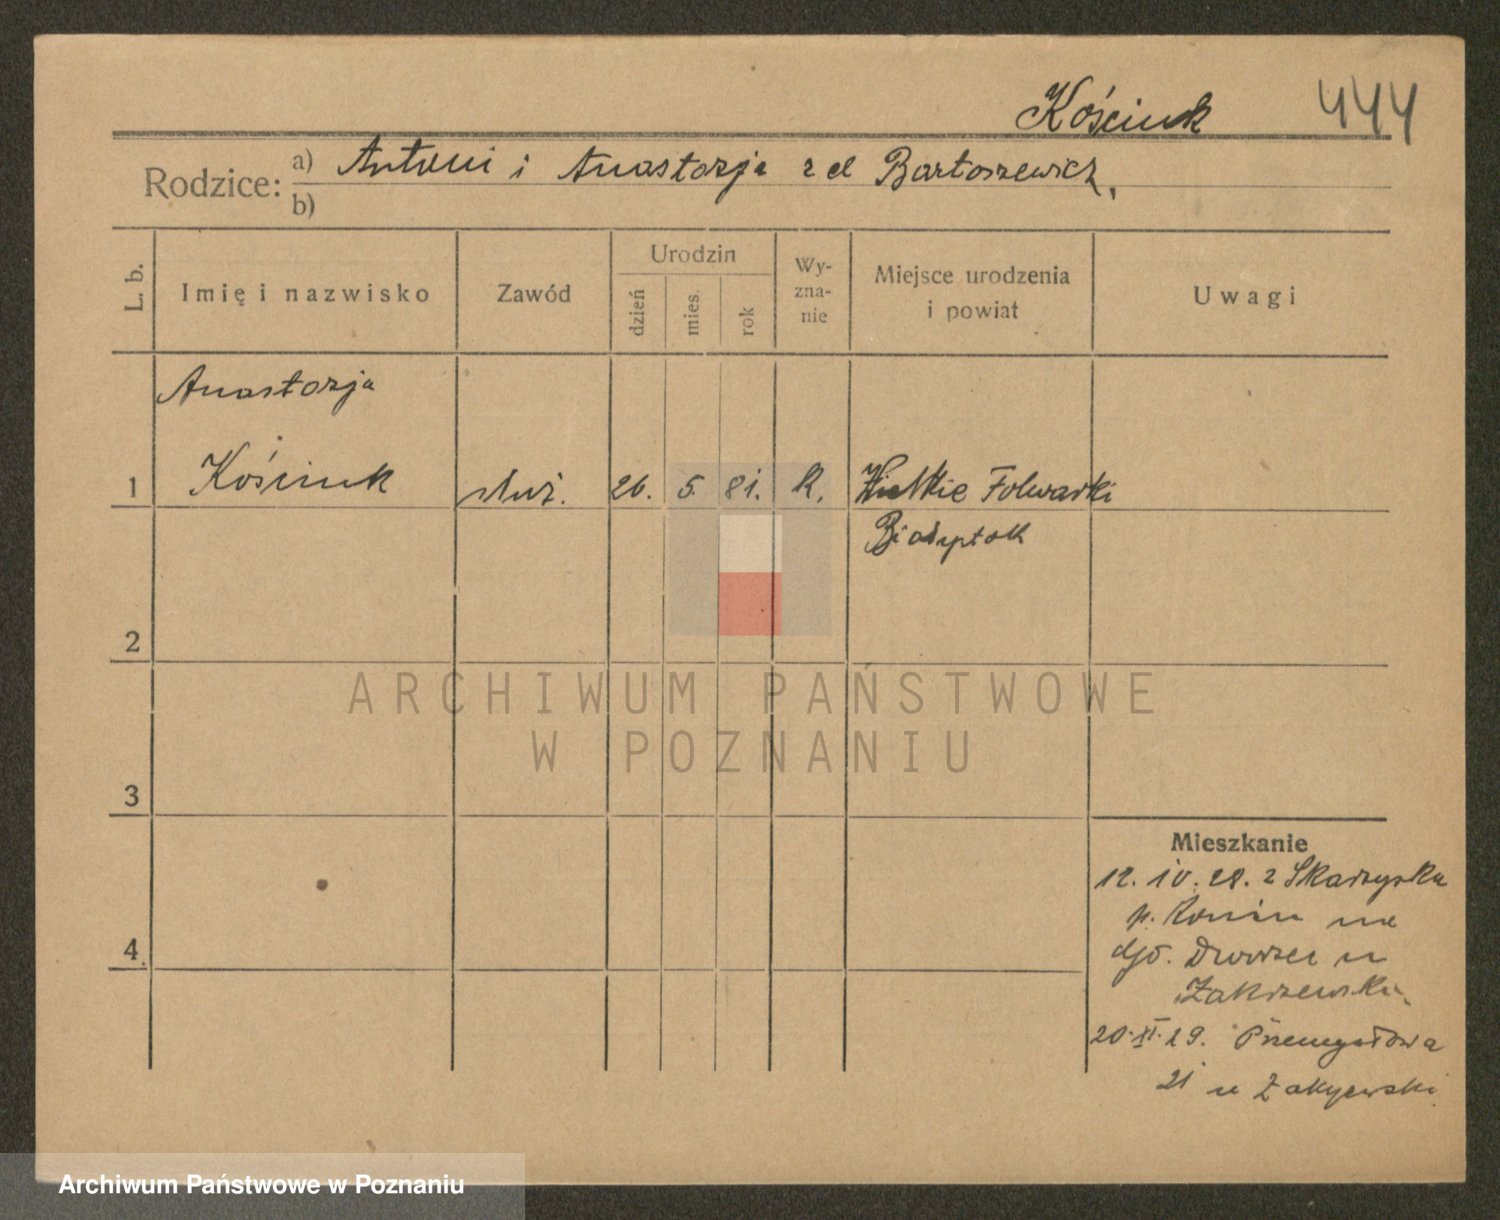 Kościuk 444
Rodzice: a) Antoni i Anastazja z d Bartoszewicz,
b)
L. b.
Imię i nazwisko
Zawód
Urodzin
dzień
mies.
rok
Wy-
zna-
nie
Miejsce urodzenia
i powiat
Uwagi
Anastazja
1 Kościuk służ. 26. 5. 81. R. Wielkie Folwarki
Białystok
2
3
4
Mieszkanie
12. 10. 28. z Skarzyska
p. Konin na
Dworzec u
Zakrzewska
20.XI.29. Przemysłowa
21 u Zakrzewski
ARCHIWUM PAŃSTWOWE
W POZNANIU
Archiwum Państwowe w Poznaniu